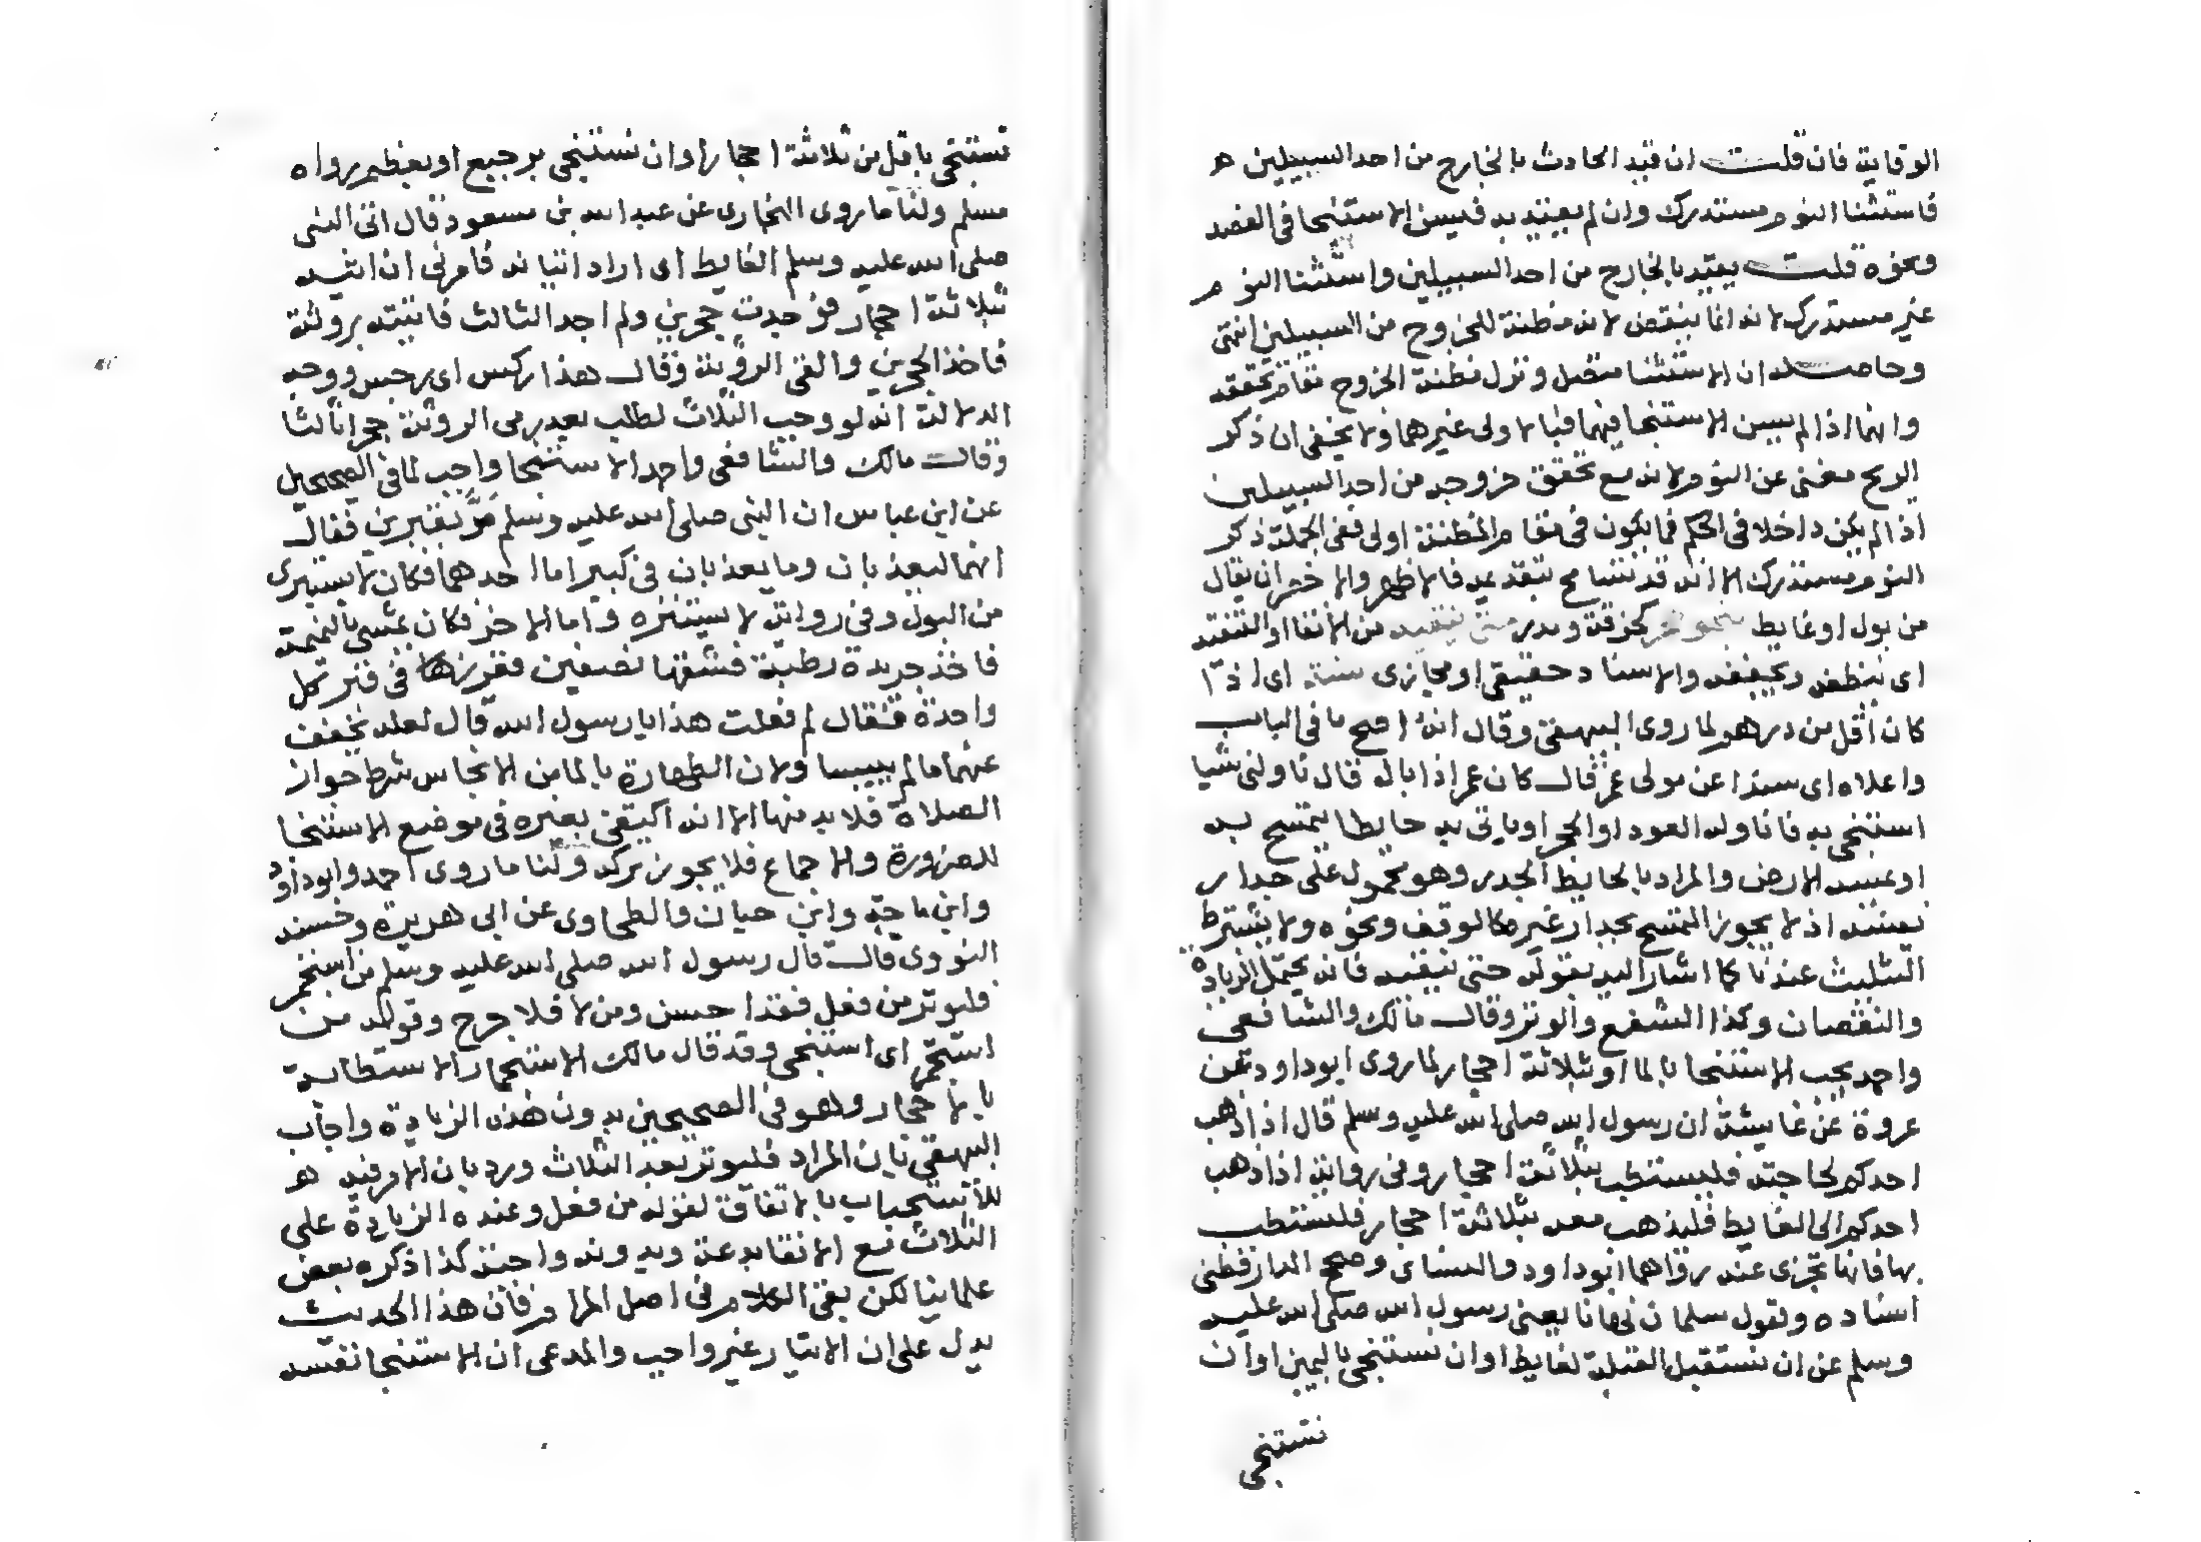 الوقاية فان قلت ان قيد الحادث بالخارج من احد السبيلين ه
فاستثنا النوم مستدرك وان لم يقيد به فيسن الاستنجا في الفصد
ونحوه قلت يقيد بالخارج من احد السبيلين واستثنا النوم
غير مستدرك لانه انما ينقض لانه مظنة للخروج من السبيلين انتهى
وحاصله ان الاستثنا متصل ونزل مظنة الخروج مقام تحققه
وانهما اذا لم يسن الاستنجا فيهما فبالاولى غيرهما ولا يخفى ان ذكر
الريح مغنى عن النوم لانه مع تحقق خروجه من احد السبيلين
اذا لم يكن داخلا في الحكم فما يكون في مقام المظنة اولى ففي الجملة ذكر
النوم مستدرك الا انه قد يتسامح فالاظهر والاخصر ان يقال
من بول او غايط بنحو حجر كخرقة ومدر حتى ينقيه من الانقا او التنقية
اى ينظفه ويخففه والاسناد حقيقى او مجازى سنة اى اذا
كان اقل من درهم لما روى البيهقى وقال انه اصح ما في الباب
واعلاه اى سندا عن مولى عمر قال كان عمر اذا بال قال ناولنى شيا
استنجى به فاناوله العود او الحجر او ياتى به حايطا يتمسح به
او يمسه الارض والمراد بالحايط الجدر وهو محمول على جدار
نفسه اذ لا يجوز التمسح بجدار غيره كالوقف ونحوه ولا يشترط
التثليث عندنا كما اشار اليه بقوله حتى ينقيه فانه يحتمل الزيادة
والنقصان وكذا الشفع والوتر وقال مالك والشافعى
واحمد يجب الاستنجا بالما او ثلاثة احجار لما روى ابو داود عن
عروة عن عايشة ان رسول الله صلى الله عليه وسلم قال اذا ذهب
احدكم لحاجته فليستطب بثلاثة احجار وفى رواية اذا ذهب
احدكم الى الغايط فليذهب معه بثلاثة احجار فليستطب
بها فانها تجزى عنه رواهما ابو داود والنساى وصحح الدارقطنى
اسناده ولقول سلمان نهانا يعنى رسول الله صلى الله عليه
وسلم عن ان نستقبل القبلة لغايط او ان نستنجى باليمين او ان
نستنجى
نستنجى باقل من ثلاثة احجار او ان نستنجى برجيع او بعظم رواه
مسلم ولنا ما روى البخارى عن عبد الله بن مسعود قال اتى النبى
صلى الله عليه وسلم الغايط اى اراد اتيانه فامرنى ان اتيه
بثلاثة احجار فوجدت حجرين ولم اجد الثالث فاتيته بروثة
فاخذ الحجرين والقى الروثة وقال هذا ركس اى رجس ووجه
الدلالة انه لو وجب الثلاث لطلب بعد رمى الروثة حجرا ثالثا
وقال مالك والشافعى واحمد الاستنجا واجب لما فى الصحيحين
عن ابن عباس ان النبى صلى الله عليه وسلم مر بقبرين فقال
انهما ليعذبان وما يعذبان فى كبير اما احدهما فكان لا يستبرى
من البول وفى رواية لا يستنزه واما الاخر فكان يمشى بالنميمة
فاخذ جريدة رطبة فشقها نصفين فغرزها فى قبر كل
واحدة فقال لم فعلت هذا يا رسول الله قال لعله يخفف
عنهما ما لم ييبسا ولان الطهارة بالما من الانجاس شرط جواز
الصلاة فلا بد منها الا انه اكتفى بغيره فى موضع الاستنجا
للضرورة والاجماع فلا يجوز تركه ولنا ما روى احمد وابو داود
وابن ماجة وابن حبان والطحاوى عن ابى هريرة وحسنه
النووى قال قال رسول الله صلى الله عليه وسلم من استجمر
فليوتر من فعل فقد احسن ومن لا فلا حرج وقوله من
استجمر اى استنجى وقد قال مالك الاستجمار الاستطابة
بالاحجار وهو فى الصحيحين بدون هذه الزيادة واجاب
البيهقى بان المراد فليوتر بعد الثلاث ورد بان الامر فيه ه
للاستحباب بالاتفاق لقوله من فعل وعنده الزيادة على
الثلاث مع الانقا بدعة وبدونه واجبة كذا ذكره بعض
علماينا لكن بقى الكلام فى اصل المرام فان هذا الحديث
يدل على ان الايتار غير واجب والمدعى ان الاستنجا نفسه